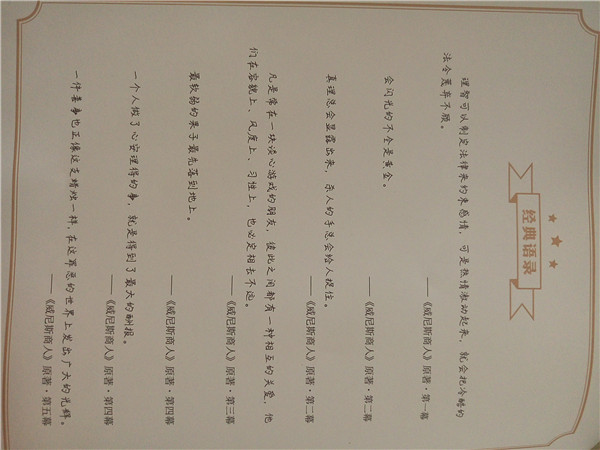 经典语录
理智可以制定法律来约束感情，可是热情激动起来，就会把冷酷的
法令蔑弃不顾。
——《威尼斯商人》原著·第一幕
会闪光的不全是黄金。
——《威尼斯商人》原著·第二幕
真理总会显露出来，杀人的手总会给人捉住。
——《威尼斯商人》原著·第二幕
凡是常在一块谈心游戏的朋友，彼此之间都有一种相互的关爱，他
们在容貌上、风度上、习性上，也必定相去不远。
——《威尼斯商人》原著·第三幕
最软弱的果子最先落到地上。
——《威尼斯商人》原著·第四幕
一个人做了心安理得的事，就是得到了最大的酬报。
——《威尼斯商人》原著·第四幕
一件善事也正像这支蜡烛一样，在这罪恶的世界上发出广大的光辉。
——《威尼斯商人》原著·第五幕